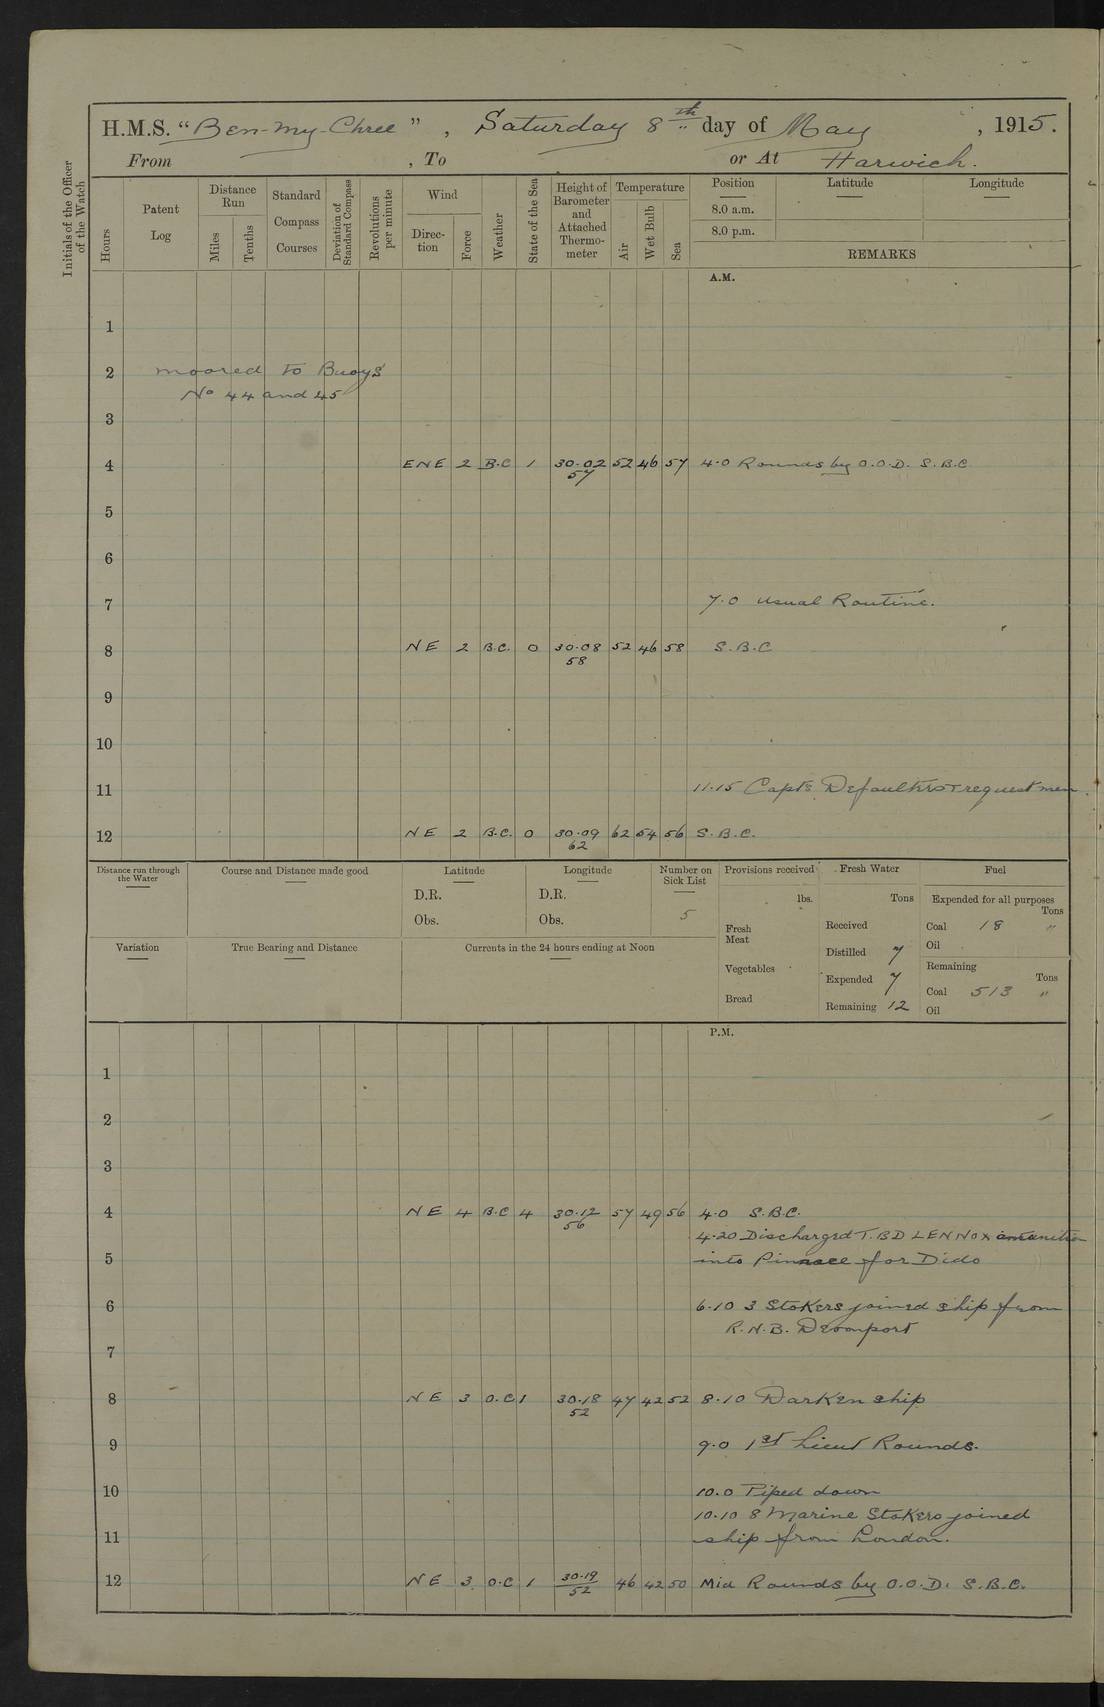 H.M.S. “Ben-my-Chree”, Saturday 8th day of May, 1915.
From , To or At Harwich.
Initials of the Officer of the Watch
Hours
Patent Log
Distance Run
Miles
Tenths
Standard Compass Courses
Deviation of Standard Compass
Revolutions per minute
Wind
Direc-tion
Force
Weather
State of the Sea
Height of Barometer and Attached Thermo-meter
Temperature
Air
Wet Bulb
Sea
Position Latitude Longitude
8.0 a.m.
8.0 p.m.
REMARKS
A.M.
1
2 moored to Buoys
No 44 and 45
3
4 ENE 2 B.C 1 30.02 52 46 57 4.0 Rounds by O.O.D. S.B.C
57
5
6
7 7.0 usual Routine.
8 NE 2 B.C. 0 30.08 52 46 58 S.B.C
58
9
10
11 11.15 Capts Defaulters + request men.
12 NE 2 B.C. 0 30.09 62 54 56 S.B.C.
62
Distance run through the Water
Course and Distance made good
Latitude
D.R.
Obs.
Longitude
D.R.
Obs.
Number on Sick List
5
Variation
True Bearing and Distance
Currents in the 24 hours ending at Noon
Provisions received
lbs.
Fresh Meat
Vegetables
Bread
Fresh Water
Tons
Received
Distilled 7
Expended 7
Remaining 12
Fuel
Expended for all purposes
Tons
Coal 18 "
Oil
Remaining
Tons
Coal 513 "
Oil
P.M.
1
2
3
4 NE 4 B.C 4 30.12 57 49 56 4.0 S.B.C.
56
4.20 Discharged T.B D LENNOX
5 into Pinnace for Dido
6 6.10 3 Stokers joined ship from
R.N.B. Devonport
7
8 NE 3 O.C 1 30.18 47 42 52 8.10 Darken ship
52
9 9.0 1st Lieut Rounds.
10 10.0 Piped down
10.10 8 Marine Stokers joined
11 ship from London.
12 NE 3 O.C 1 30.19 46 42 50 Mid Rounds by O.O.D. S.B.C.
52